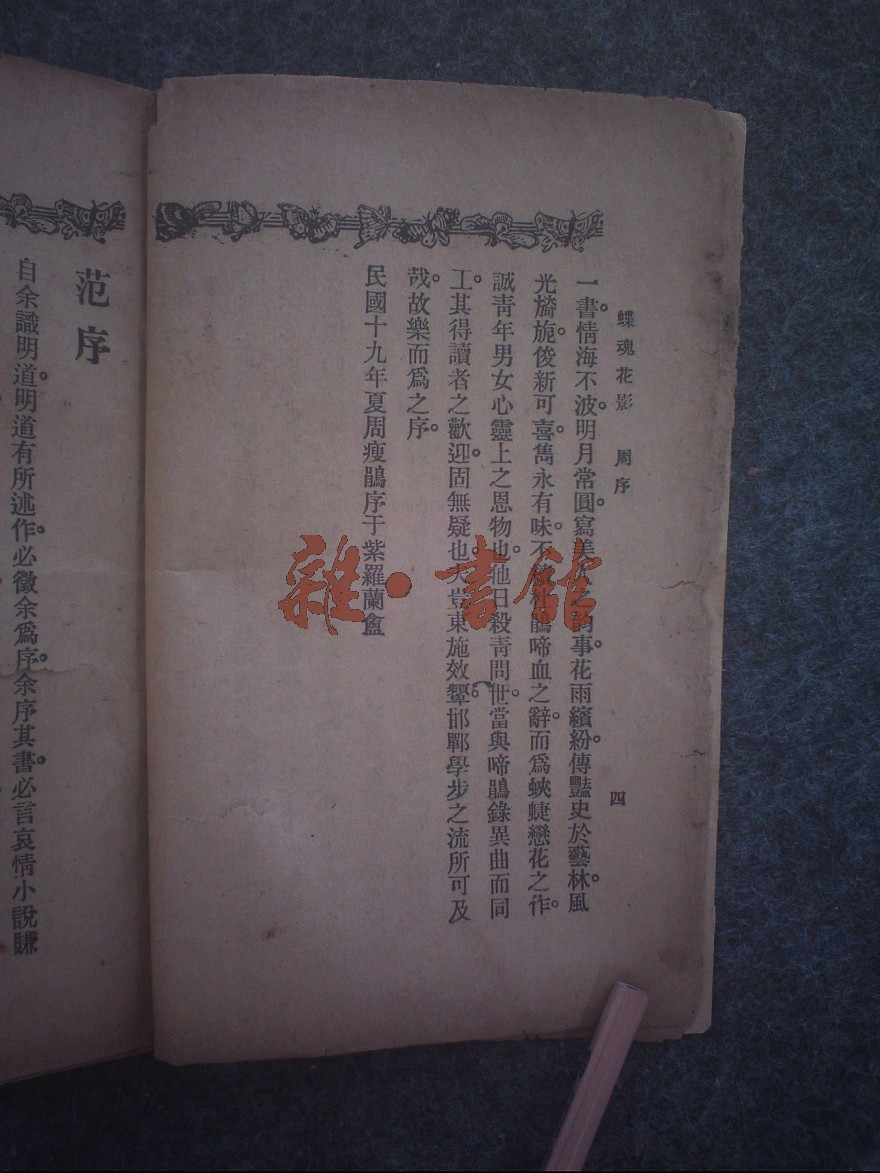 蝶魂花影　周序　四
一書。情海不波。明月常圓。寫美人之韵事。花雨繽紛。傳豔史於藝林。風
光旖旎。俊新可喜。雋永有味。不 鵑啼血之辭。而爲蛺蝶戀花之作。
誠靑年男女心靈上之恩物也。他日殺靑問世。當與啼鵑錄異曲而同
工。其得讀者之歡迎。固無疑也。夫豈東施效顰。邯鄲學步之流所可及
哉。故樂而爲之序。
民國十九年夏周瘦鵑序于紫羅蘭盦
范序
自余識明道。明道有所述作。必徵余爲序。余序其書。必言哀情小說賺
雜·書館